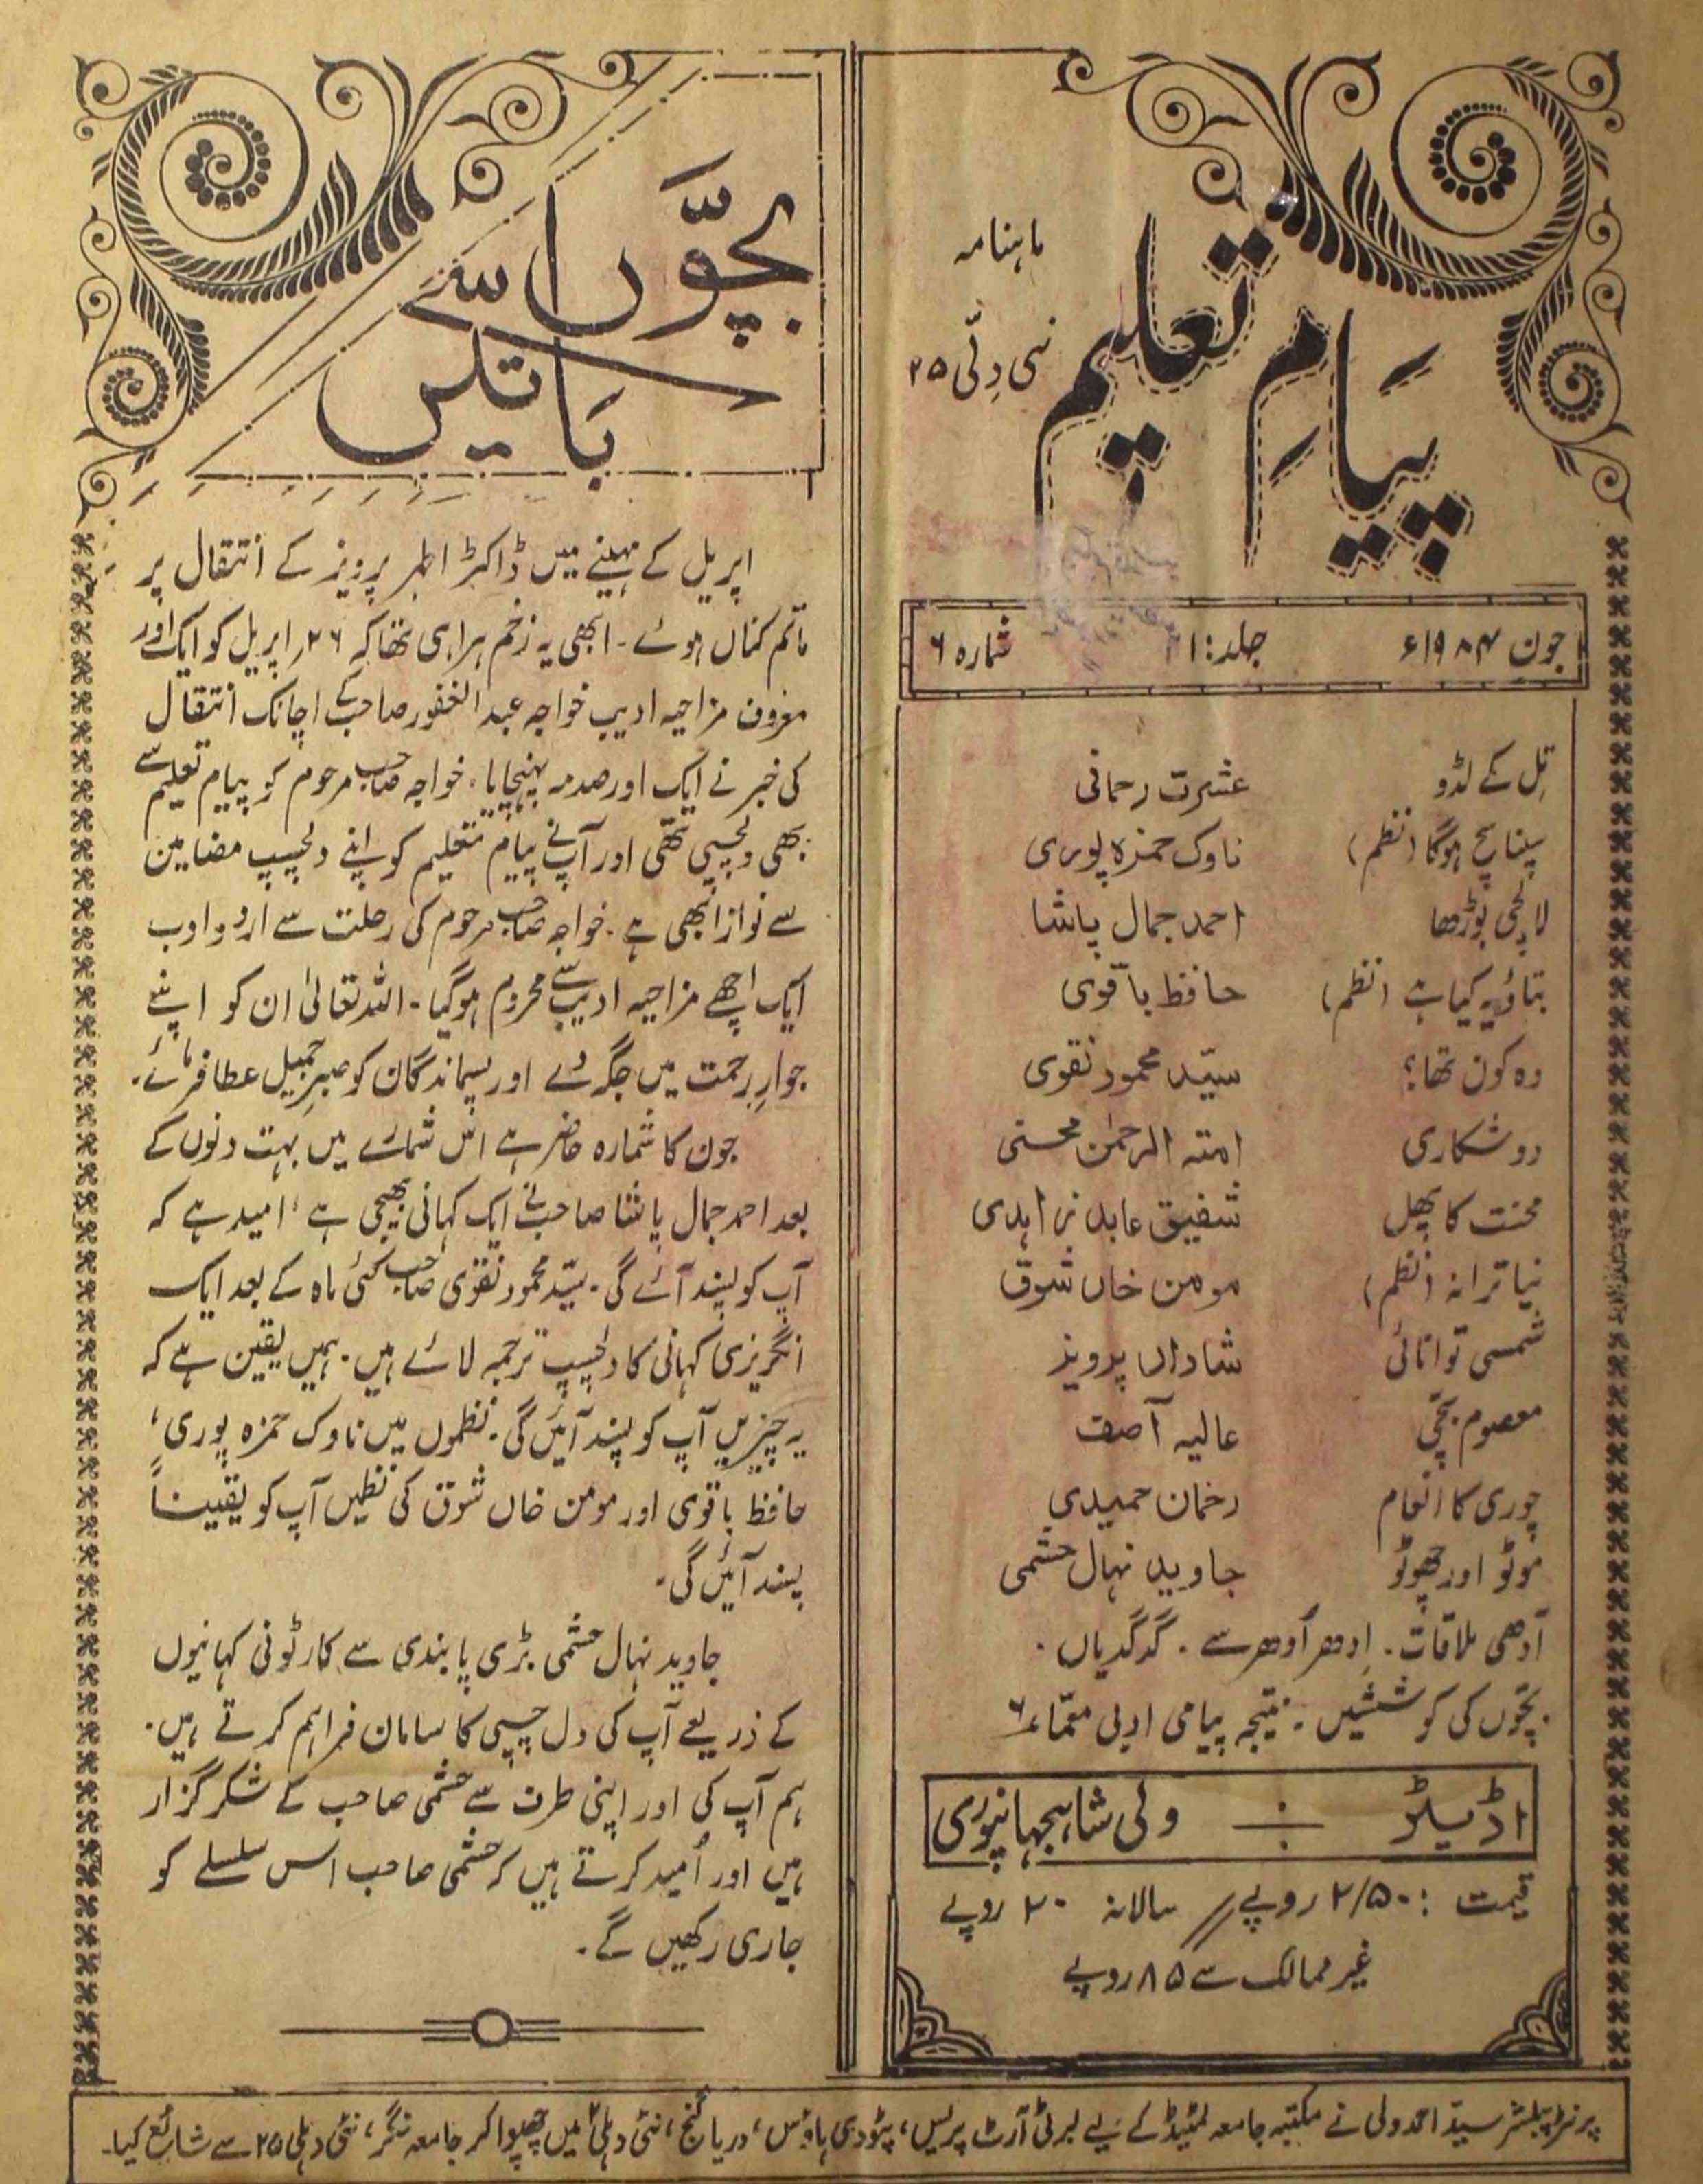 ماہنامہ
پیامِ تعلیم
نئی دِلّی ۲۵
جون ۱۹۸۴ء جلد: ۲۱ شمارہ ۶
تِل کے لڈو عشرت رحمانی
سپنا سچ ہوگا (نظم) ناوک حمزہ پوری
لالچی بوڑھا احمد جمال پاشا
بتاؤ یہ کیا ہے (نظم) حافظ باقوی
وہ کون تھا؟ سیّد محمود نقوی
دو شکاری امتہ الرحمٰن محسنی
محنت کا پھل شفیق عابد زاہدی
نیا ترانہ (نظم) مومن خاں شوق
شمسی توانائی شاداں پرویز
معصوم بچّی عالیہ آصف
چوری کا انعام رخمان حمیدی
موٹو اور چھوٹو جاوید نہال حشمی
آدھی ملاقات۔ اِدھر اُدھر سے۔ گدگدیاں۔
بچّوں کی کوششیں۔ نتیجہ پیامی ادبی معمّا ۶
اڈیٹر ÷ ولی شاہجہانپوری
قیمت: ۲/۵۰ روپے // سالانہ ۲۰ روپے
غیر ممالک سے ۸۵ روپے
بچّوں سے
باتیں
اپریل کے مہینے میں ڈاکٹر اطہر پرویز کے انتقال پر
ماتم کناں ہوئے۔ ابھی یہ زخم ہرا ہی تھا کہ ۲۶؍ اپریل کو ایک اور
معروف مزاحیہ ادیب خواجہ عبدالغفور صاحب کے اچانک انتقال
کی خبر نے ایک اور صدمہ پہنچایا۔ خواجہ صاحب مرحوم کو پیام تعلیم سے
بھی دلچسپی تھی اور آپ نے پیام تعلیم کو اپنے دلچسپ مضامین
سے نوازا بھی ہے۔ خواجہ صاحب مرحوم کی رحلت سے اردو ادب
ایک اچھے مزاحیہ ادیب سے محروم ہوگیا۔ اللہ تعالیٰ ان کو اپنے
جوارِ رحمت میں جگہ دے اور پسماندگان کو صبرِ جمیل عطا فرمائے۔
جون کا شمارہ حاضر ہے اس شمارے میں بہت دنوں کے
بعد احمد جمال پاشا صاحب نے ایک کہانی بھیجی ہے، امید ہے کہ
آپ کو پسند آئے گی۔ سیّد محمود نقوی صاحب کئی ماہ کے بعد ایک
انگریزی کہانی کا دلچسپ ترجمہ لائے ہیں۔ ہمیں یقین ہے کہ
یہ چیزیں آپ کو پسند آئیں گی۔ نظموں میں ناوک حمزہ پوری،
حافظ باقوی اور مومن خاں شوق کی نظمیں آپ کو یقیناً
پسند آئیں گی۔
جاوید نہال حشمی بڑی پابندی سے کارٹونی کہانیوں
کے ذریعے آپ کی دل چسپی کا سامان فراہم کرتے ہیں۔
ہم آپ کی اور اپنی طرف سے حشمی صاحب کے شکر گزار
ہیں اور اُمید کرتے ہیں کہ حشمی صاحب اس سلسلے کو
جاری رکھیں گے۔
پرنٹر پبلشر سیّد احمد ولی نے مکتبہ جامعہ لمٹیڈ کے لیے لبرٹی آرٹ پریس، پٹودی ہاؤس، دریا گنج، نئی دہلی ۲ میں چھپوا کر جامعہ نگر، نئی دہلی ۲۵ سے شائع کیا۔